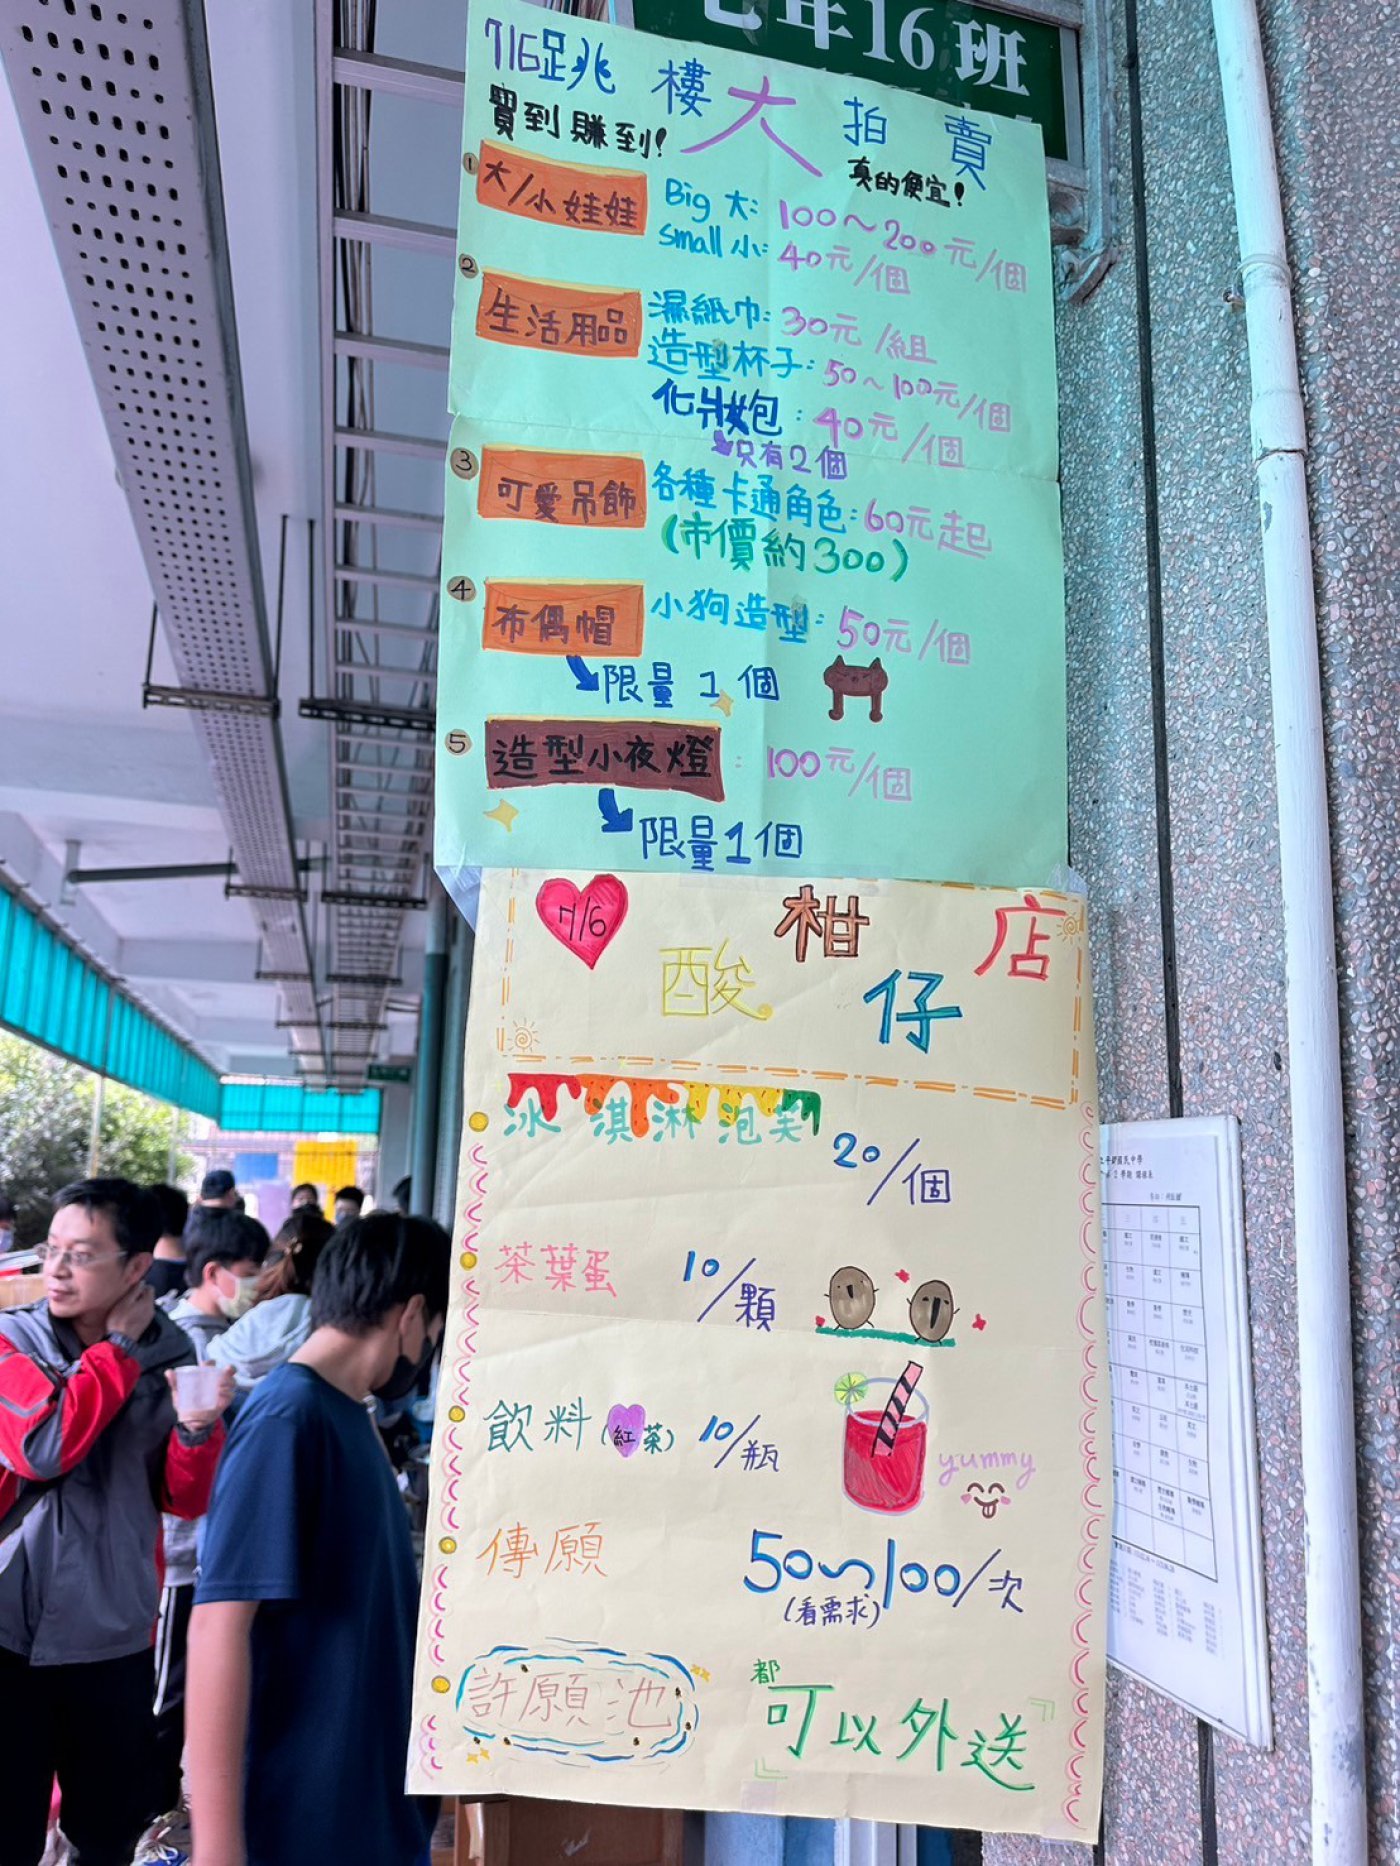 七年16班
716跳樓大拍賣
買到賺到!
真的便宜!
1 大/小娃娃 Big 大: 100~200元/個
small 小: 40元/個
2 生活用品 濕紙巾: 30元/組
造型杯子: 50~100元/個
化妝包: 40元/個
只有2個
3 可愛吊飾 各種卡通角色: 60元起
(市價約300)
4 布偶帽 小狗造型: 50元/個
限量1個
5 造型小夜燈: 100元/個
限量1個
716 酸柑仔店
冰淇淋泡芙 20/個
茶葉蛋 10/顆
飲料(紅茶) 10/瓶
yummy
傳願 50~100/次
(看需求)
許願池 都可以外送